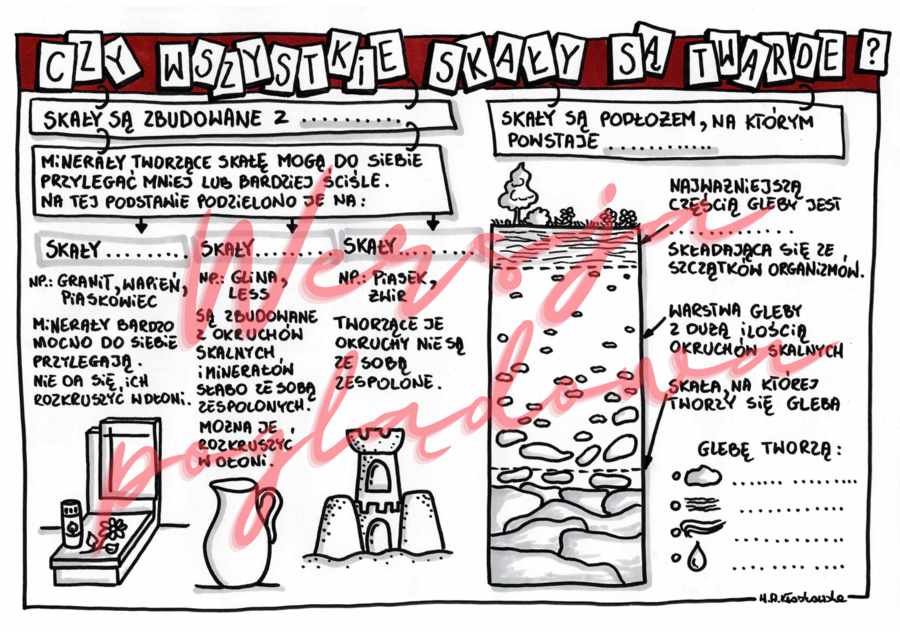 CZY WSZYSTKIE SKAŁY SĄ TWARDE ?
SKAŁY SĄ ZBUDOWANE Z ..........
MINERAŁY TWORZĄCE SKAŁĘ MOGĄ DO SIEBIE
PRZYLEGAĆ MNIEJ LUB BARDZIEJ ŚCIŚLE.
NA TEJ PODSTAWIE PODZIELONO JE NA:
SKAŁY ..........
NP.: GRANIT, WAPIEŃ,
PIASKOWIEC
MINERAŁY BARDZO
MOCNO DO SIEBIE
PRZYLEGAJĄ.
NIE DA SIĘ ICH
ROZKRUSZYĆ W DŁONI.
SKAŁY ..........
NP.: GLINA,
LESS
SĄ ZBUDOWANE
Z OKRUCHÓW
SKALNYCH
I MINERAŁÓW
SŁABO ZE SOBĄ
ZESPOLONYCH.
MOŻNA JE
ROZKRUSZYĆ
W DŁONI.
SKAŁY ..........
NP.: PIASEK,
ŻWIR
TWORZĄCE JE
OKRUCHY NIE SĄ
ZE SOBĄ
ZESPOLONE.
SKAŁY SĄ PODŁOŻEM, NA KTÓRYM
POWSTAJE ............
NAJWAŻNIEJSZĄ
CZĘŚCIĄ GLEBY JEST
..............
SKŁADAJĄCA SIĘ ZE
SZCZĄTKÓW ORGANIZMÓW.
WARSTWA GLEBY
Z DUŻĄ ILOŚCIĄ
OKRUCHÓW SKALNYCH
SKAŁA, NA KTÓREJ
TWORZY SIĘ GLEBA
GLEBĘ TWORZĄ:
................
................
................
................
Wersja
poglądowa